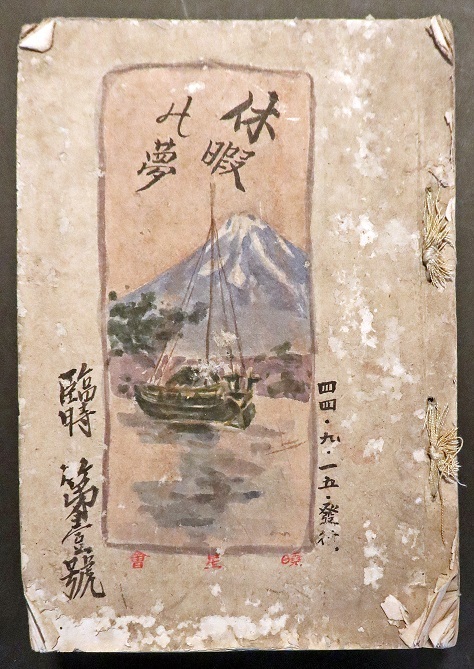 休暇
の夢
四四・九・一五・發行.
臨時 第壹號
曉星會